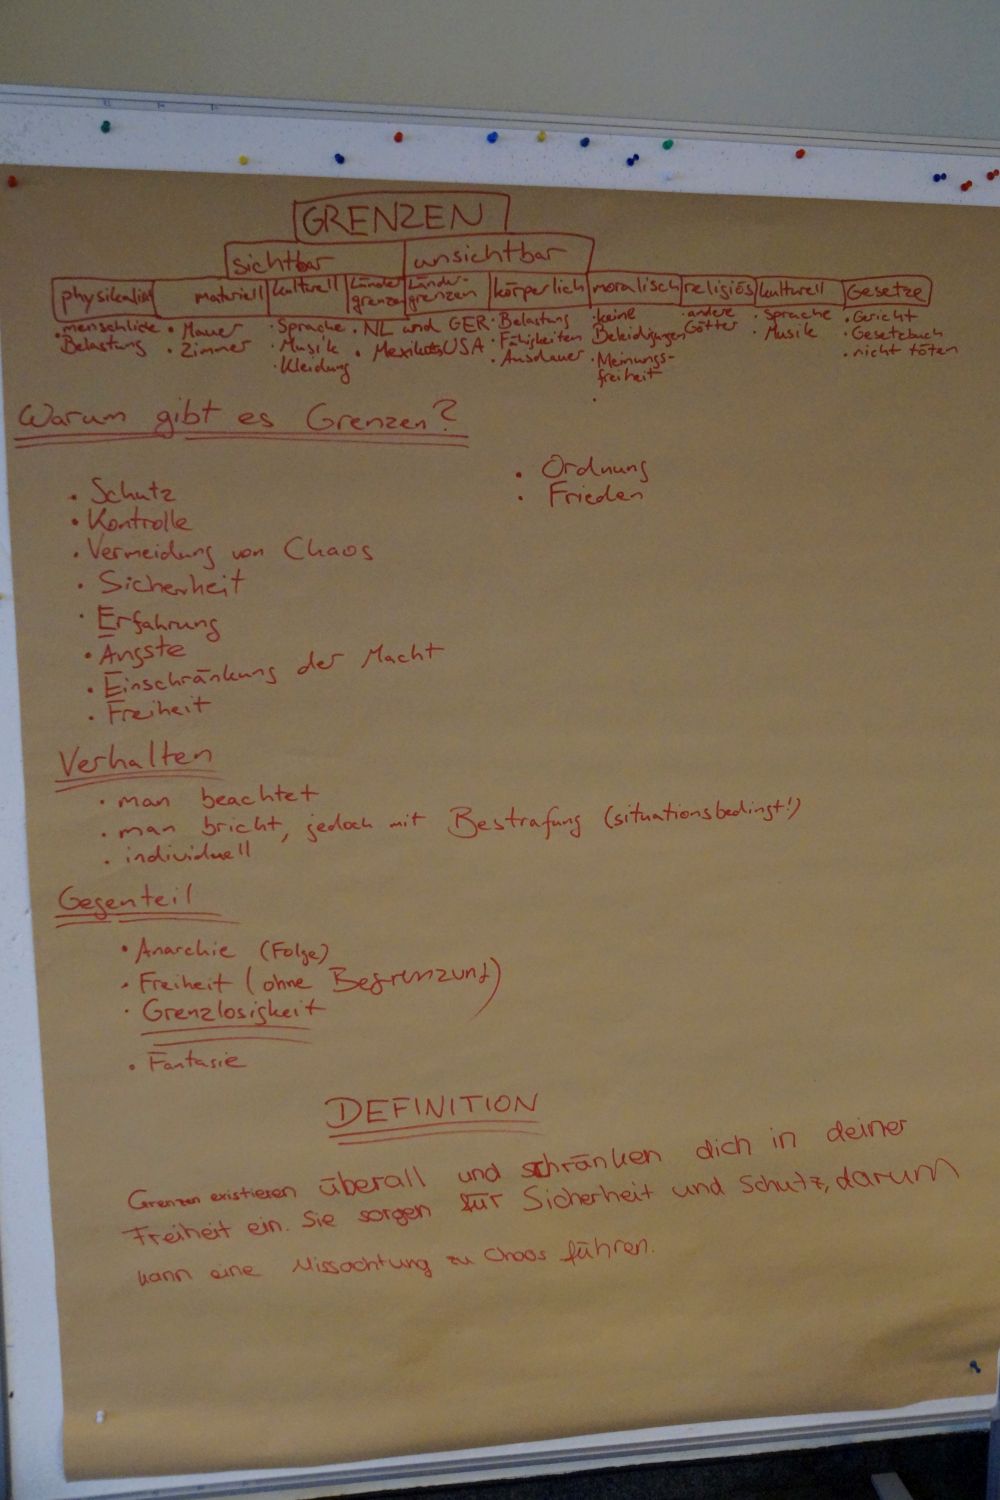 GRENZEN
sichtbar unsichtbar
physikalisch materiell kulturell Ländergrenzen Ländergrenzen körperlich moralisch religiös kulturell Gesetze
• menschliche Belastung
• Mauer
• Zimmer
• Sprache
• Musik
• Kleidung
• NL und GER
• Mexiko USA
• Belastung
• Fähigkeiten
• Ausdauer
• keine Beleidigungen
• Meinungs-
freiheit
•
• andere Götter
• Sprache
• Musik
• Gericht
• Gesetzbuch
• nicht töten
Warum gibt es Grenzen?
• Schutz
• Kontrolle
• Vermeidung von Chaos
• Sicherheit
• Erfahrung
• Ängste
• Einschränkung der Macht
• Freiheit
• Ordnung
• Frieden
Verhalten
• man beachtet
• man bricht, jedoch mit Bestrafung (situationsbedingt!)
• individuell
Gegenteil
• Anarchie (Folge)
• Freiheit (ohne Begrenzung)
• Grenzlosigkeit
• Fantasie
DEFINITION
Grenzen existieren überall und schränken dich in deiner
Freiheit ein. Sie sorgen für Sicherheit und Schutz, darum
kann eine Missachtung zu Chaos führen.